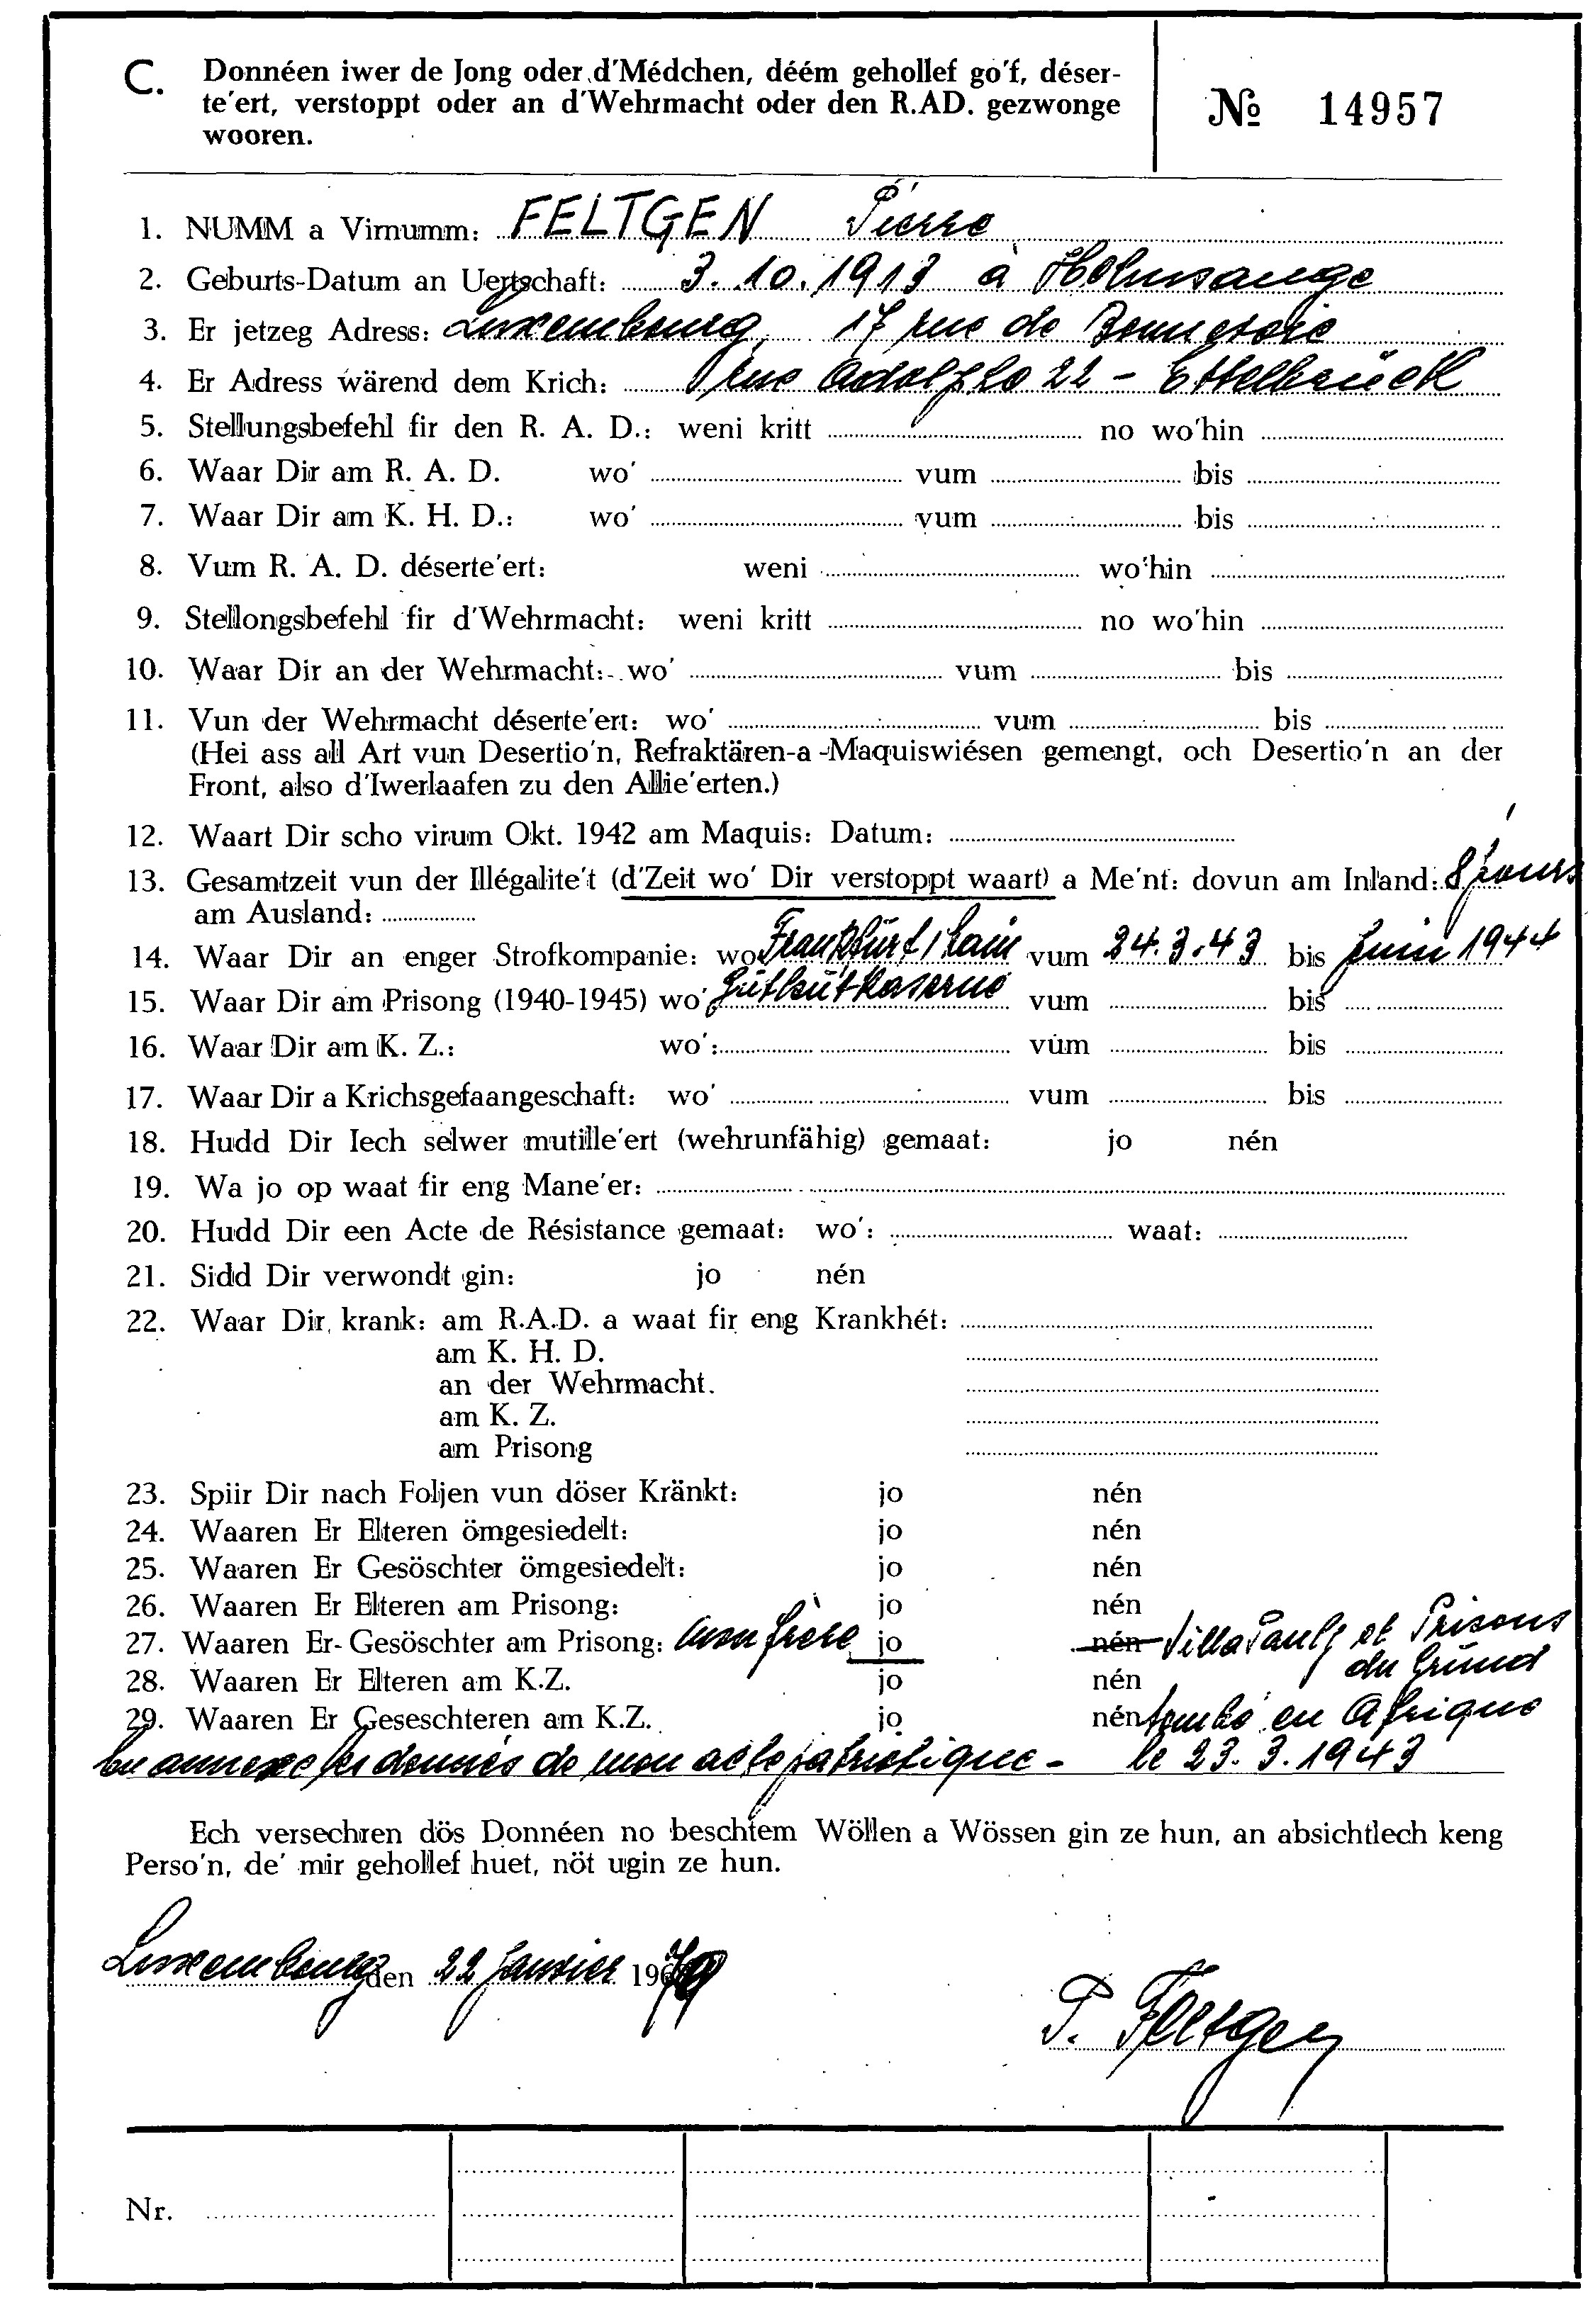 C. Donnéen iwer de Jong oder d'Médchen, déém gehollef go'f, déser-
te'ert, verstoppt oder an d'Wehrmacht oder den R.AD. gezwonge
wooren.
№ 14957
1. NUMM a Virnumm: FELTGEN Pierre
2. Geburts-Datum an Uertschaft: 3.10.1913 à Holmsange
3. Er jetzeg Adress: Luxembourg, 17 rue de
4. Er Adress wärend dem Krich: rue Adolphe 22 - Ettelbrück
5. Stellungsbefehl fir den R. A. D.: weni kritt no wo'hin
6. Waar Dir am R. A. D. wo' vum bis
7. Waar Dir am K. H. D.: wo' vum bis
8. Vum R. A. D. déserte'ert: weni wo'hin
9. Stellongsbefehl fir d'Wehrmacht: weni kritt no wo'hin
10. Waar Dir an der Wehrmacht: wo' vum bis
11. Vun der Wehrmacht déserte'ert: wo' vum bis
(Hei ass all Art vun Desertio'n, Refraktären-a-Maquiswiésen gemengt, och Desertio'n an der
Front, also d'Iwerlaafen zu den Allie'erten.)
12. Waart Dir scho virum Okt. 1942 am Maquis: Datum:
13. Gesamtzeit vun der Illégalite't (d'Zeit wo' Dir verstoppt waart) a Me'nt: dovun am Inland: 8 jours
am Ausland:
14. Waar Dir an enger Strofkompanie: wo' Frankfurt/Main vum 24.3.43 bis Juin 1944
15. Waar Dir am Prisong (1940-1945) wo' vum bis
16. Waar Dir am K. Z.: wo': vum bis
17. Waar Dir a Krichsgefaangeschaft: wo' vum bis
18. Hudd Dir Iech selwer mutille'ert (wehrunfähig) gemaat: jo nén
19. Wa jo op waat fir eng Mane'er:
20. Hudd Dir een Acte de Résistance gemaat: wo': waat:
21. Sidd Dir verwondt gin: jo nén
22. Waar Dir krank: am R.A.D. a waat fir eng Krankhét:
am K. H. D.
an der Wehrmacht.
am K. Z.
am Prisong
23. Spiir Dir nach Foljen vun döser Kränkt: jo nén
24. Waaren Er Elteren ömgesiedelt: jo nén
25. Waaren Er Gesöschter ömgesiedelt: jo nén
26. Waaren Er Elteren am Prisong: jo nén
27. Waaren Er Gesöschter am Prisong: mon frère jo nén Villa Pauly et Prisons
du Grund
28. Waaren Er Elteren am K.Z. jo nén
29. Waaren Er Geseschteren am K.Z. jo nén tombé en Afrique
En annexe les donnés de mon acte patriotique - le 23.3.1943
Ech versechren dös Donnéen no beschtem Wöllen a Wössen gin ze hun, an absichtlech keng
Perso'n, de' mir gehollef huet, nöt ugin ze hun.
Luxembourg den 22 Janvier 19
P. Feltgen
Nr.